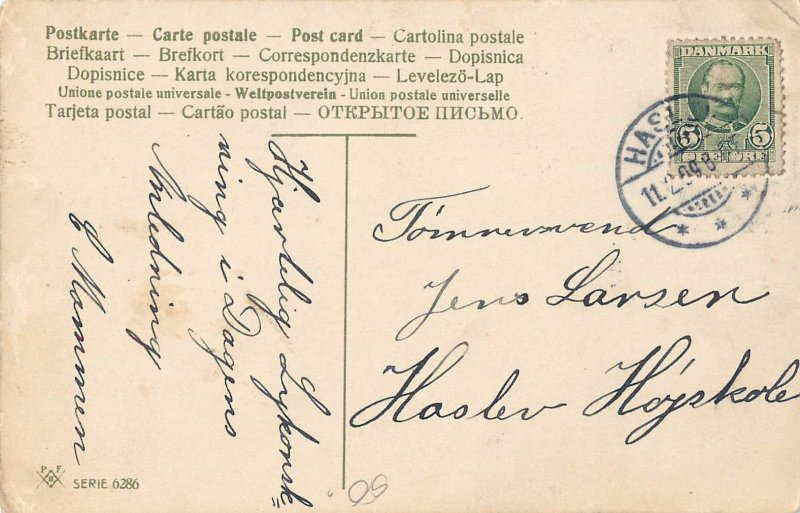 Postkarte — Carte postale — Post card — Cartolina postale
Briefkaart — Brefkort — Correspondenzkarte — Dopisnica
Dopisnice — Karta korespondencyjna — Levelező-Lap
Unione postale universale - Weltpostverein - Union postale universelle
Tarjeta postal — Cartão postal — ОТКРЫТОЕ ПИСЬМО.
DANMARK
5 5
ØRE ØRE
HASL
11.2.09 8
Hjertelig Lykønsk=
ning i Dagens
Anledning
E Mammen
Tømrersvend
Jens Larsen
Haslev Højskole
P F
B
SERIE 6286
50